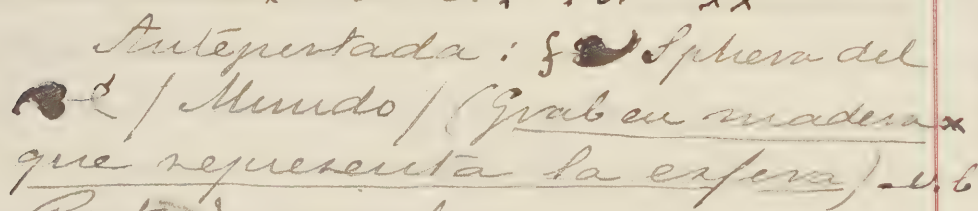 Antéportada : § Sphera del
/ Mundo / (Grab en madera x
que representa la esfera) - v. b